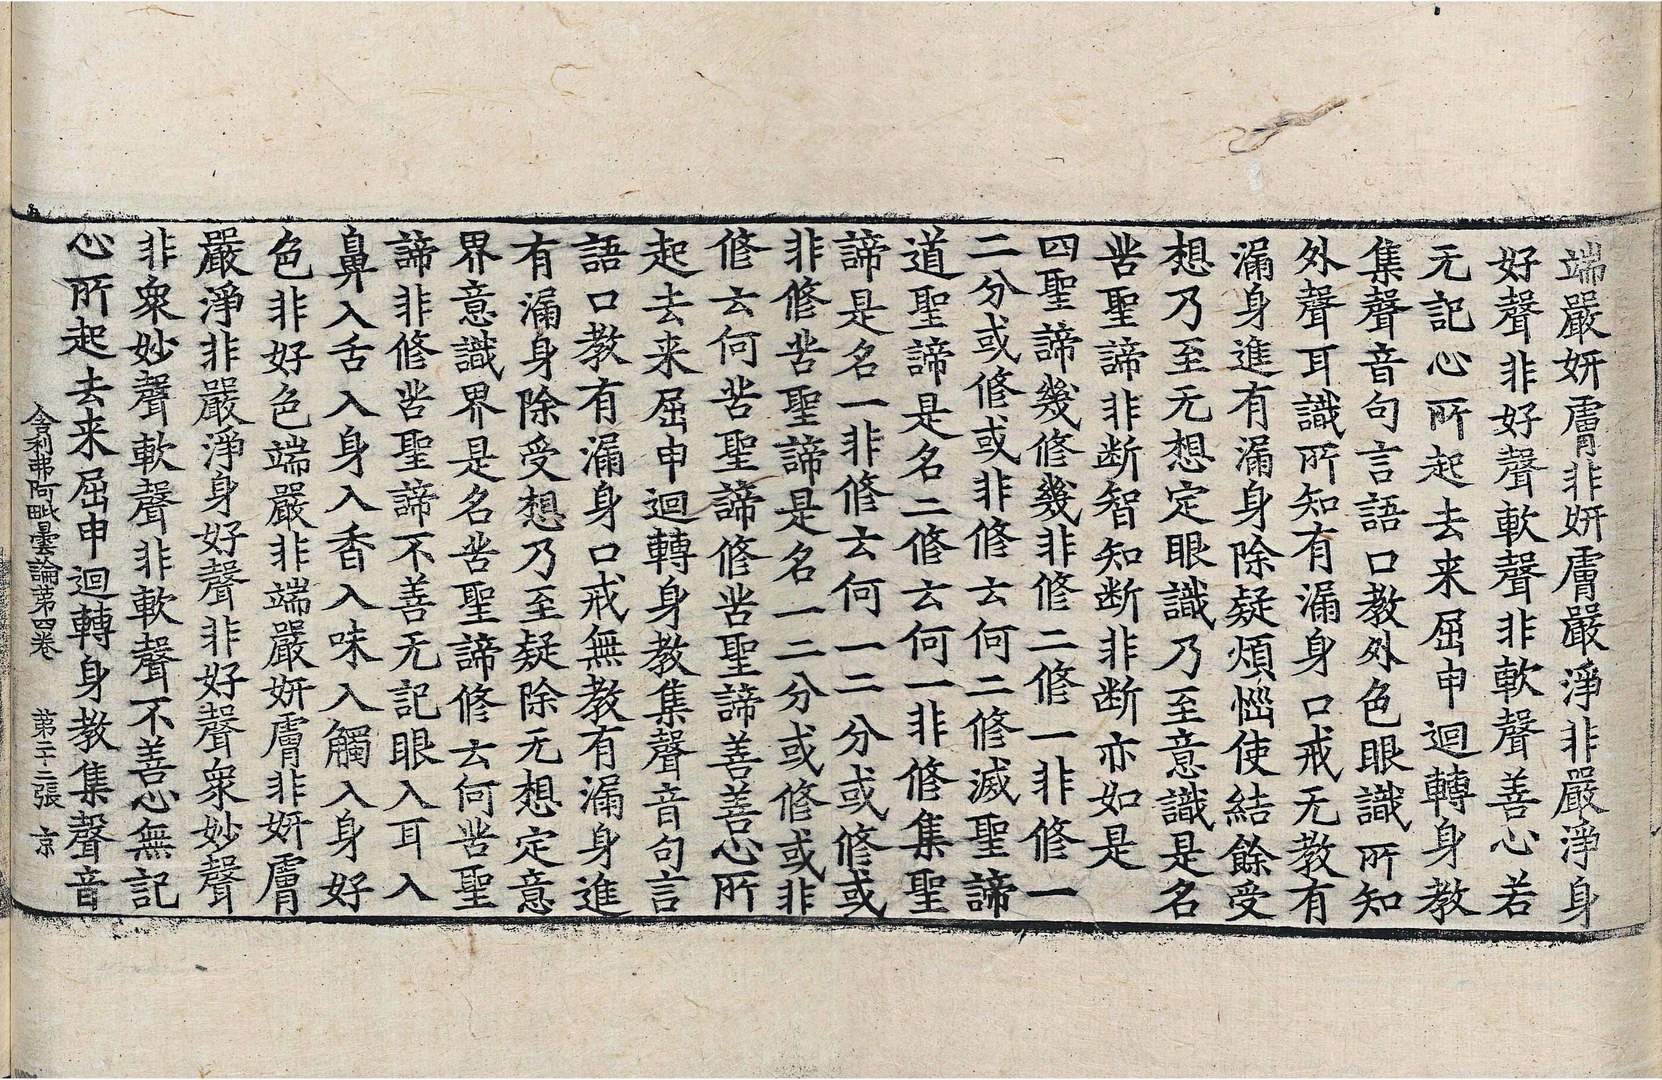 端嚴妍膚非妍膚嚴淨非嚴淨身
好聲非好聲軟聲非軟聲善心若
无記心所起去来屈申迴轉身教
集聲音句言語口教外色眼識所知
外聲耳識所知有漏身口戒无教有
漏身進有漏身除疑煩惱使結餘受
想乃至无想定眼識乃至意識是名
苦聖諦非断智知断非断亦如是
四聖諦幾修幾非修二修一非修一
二分或修或非修云何二修滅聖諦
道聖諦是名二修云何一非修集聖
諦是名一非修云何一二分或修或
非修苦聖諦是名一二分或修或非
修云何苦聖諦修苦聖諦善善心所
起去来屈申迴轉身教集聲音句言
語口教有漏身口戒無教有漏身進
有漏身除受想乃至疑除无想定意
界意識界是名苦聖諦修云何苦聖
諦非修苦聖諦不善无記眼入耳入
鼻入舌入身入香入味入觸入身好
色非好色端嚴非端嚴妍膚非妍膚
嚴淨非嚴淨身好聲非好聲衆妙聲
非衆妙聲軟聲非軟聲不善心無記
心所起去来屈申迴轉身教集聲音
舍利弗阿毗曇論第四卷 第二十二張 京